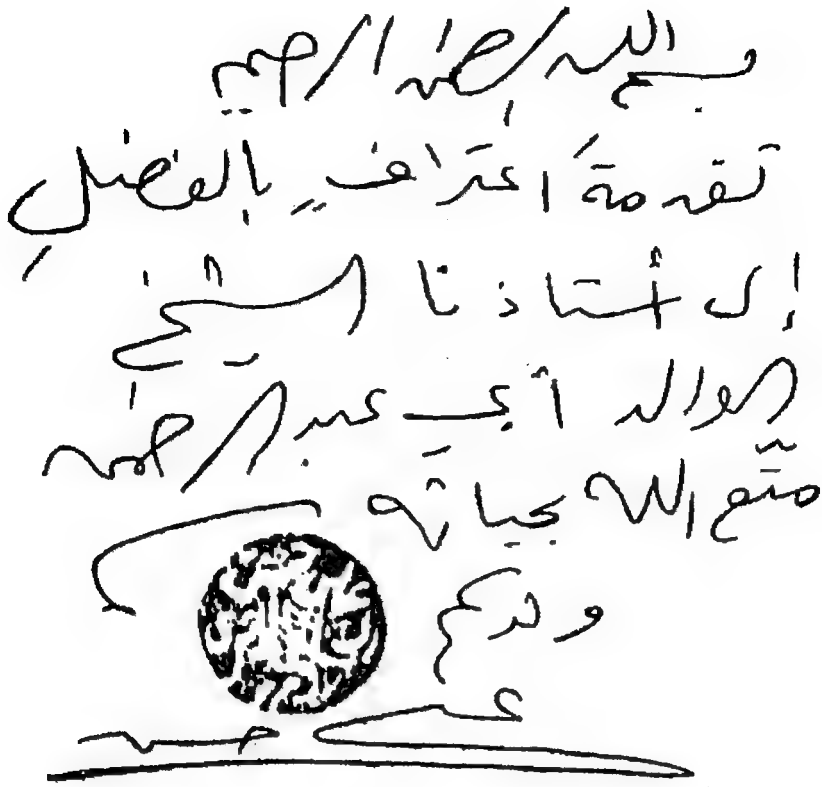 بسم الله الرحمن الرحيم
تقدمةُ اعترافٍ بالفضلِ
إلى أستاذنا الشيخ
الوالد أبي عبد الرحمن
متّع الله بحياته
ولدكم